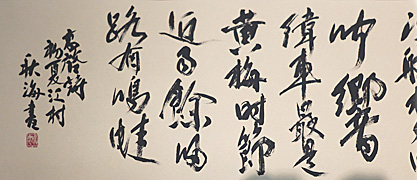 響
緯車最是
黄梅時節
近雨餘歸
路有鳴蛙
高啓詩
初夏江村
秋海書